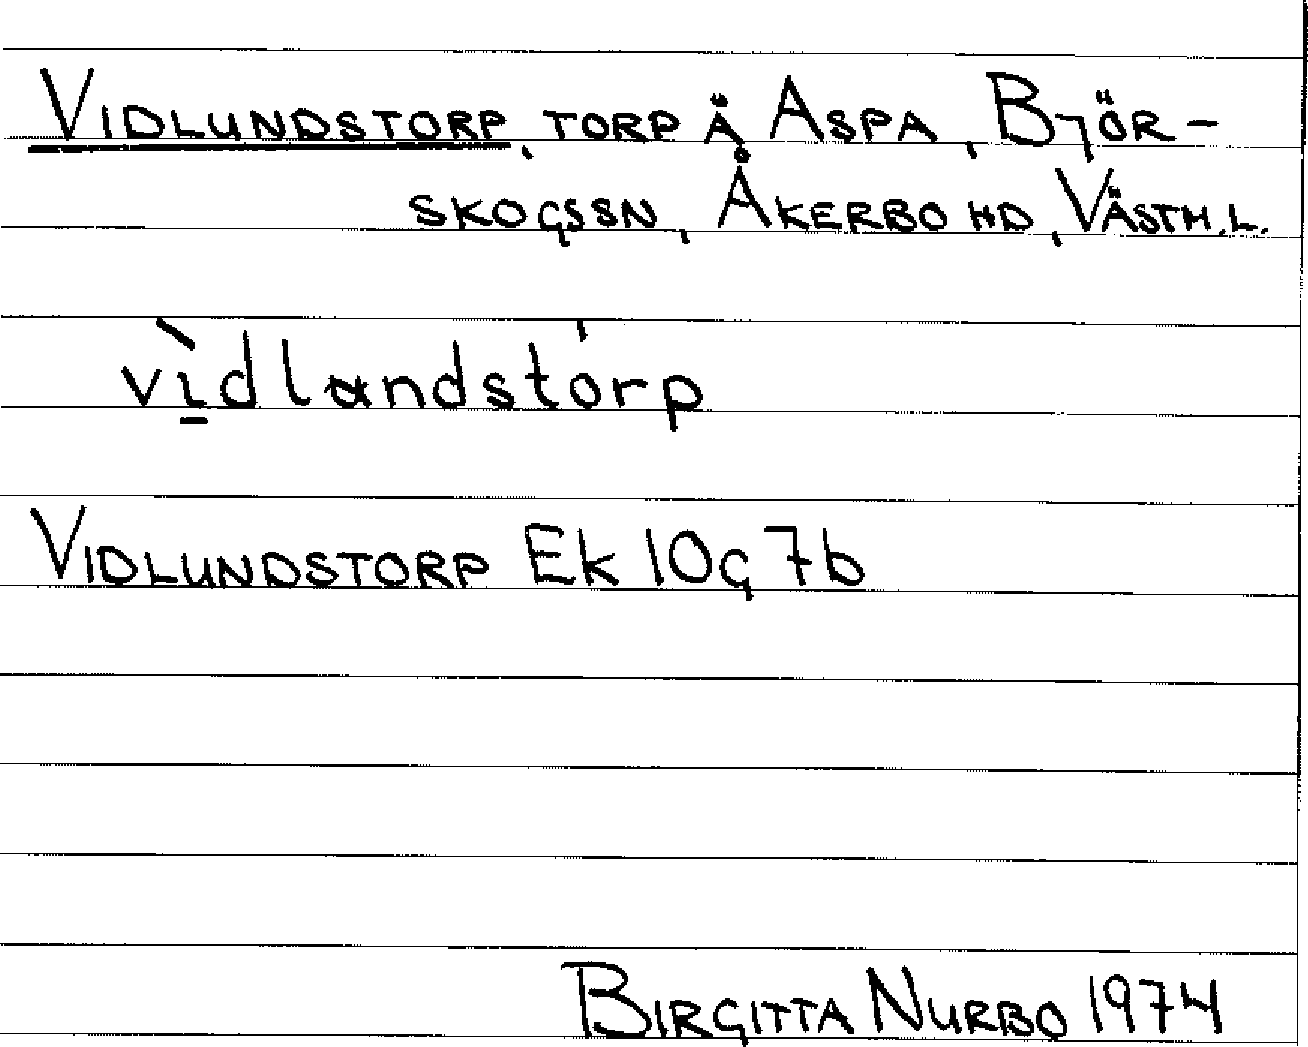 VIDLUNDSTORP, TORP Å ASPA, BJÖR-
SKOGS SN, ÅKERBO HD, VÄSTM.L.
vìdlandstórp
VIDLUNDSTORP Ek 10g 7b
BIRGITTA NURBO 1974